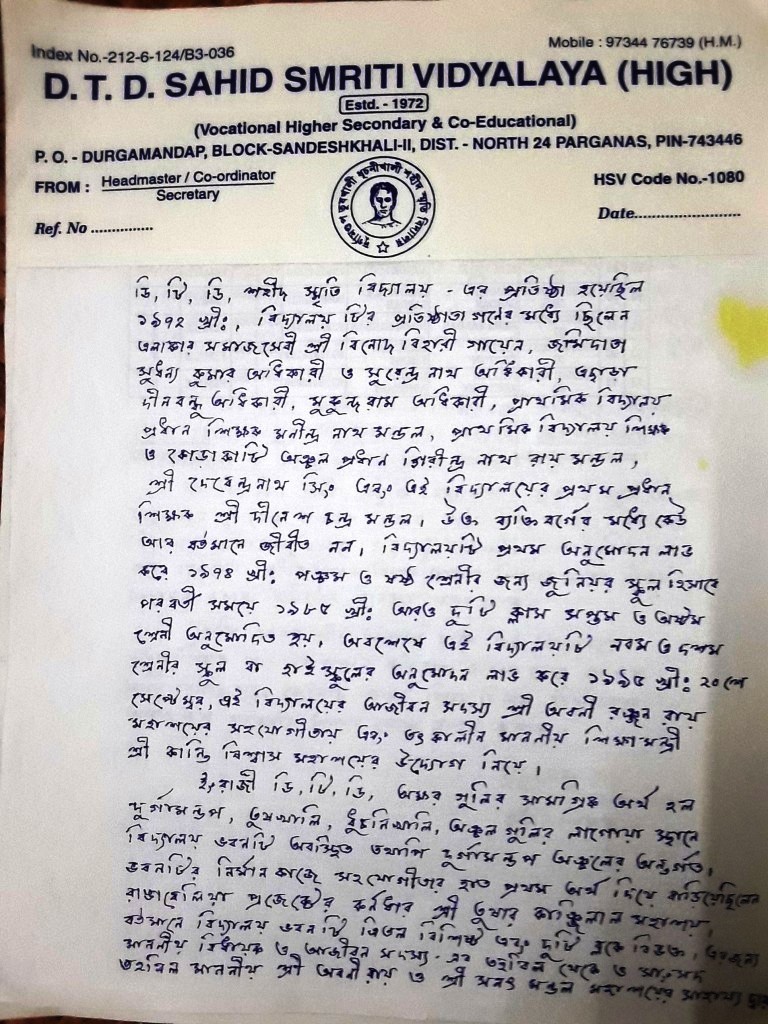 Index No.-212-6-124/B3-036
Mobile : 97344 76739 (H.M.)
D. T. D. SAHID SMRITI VIDYALAYA (HIGH)
Estd. - 1972
(Vocational Higher Secondary & Co-Educational)
P. O. - DURGAMANDAP, BLOCK-SANDESHKHALI-II, DIST. - NORTH 24 PARGANAS, PIN-743446
FROM : Headmaster / Co-ordinator
Secretary
HSV Code No.-1080
Ref. No ...............
Date........................
ডি, টি, ডি, শহীদ স্মৃতি বিদ্যালয় - এর প্রতিষ্ঠা হয়েছিল
১৯৭২ খ্রীঃ, বিদ্যালয় টির প্রতিষ্ঠাতা গনের মধ্যে ছিলেন
এলাকার সমাজসেবী শ্রী বিনোদ বিহারী গায়েন, জমিদাতা
সুধন্য কুমার অধিকারী ও সুরেন্দ্র নাথ অধিকারী, এছাড়া
দীনবন্ধু অধিকারী, মুকুন্দরাম অধিকারী, প্রাথমিক বিদ্যালয়
প্রধান শিক্ষক মনীন্দ্র নাথ মন্ডল, প্রাথমিক বিদ্যালয় শিক্ষক
ও কোড়াকাটি অঞ্চল প্রধান গিরীন্দ্র নাথ রায় মন্ডল,
শ্রী দেবেন্দ্রনাথ সিং এবং এই বিদ্যালয়ের প্রথম প্রধান
শিক্ষক শ্রী দীনেশ চন্দ্র মন্ডল। উক্ত ব্যক্তি বর্গের মধ্যে কেউ
আর বর্তমানে জীবীত নন, বিদ্যালয়টি প্রথম অনুমোদন লাভ
করে ১৯৭৪ খ্রীঃ পঞ্চম ও ষষ্ঠ শ্রেনীর জন্য জুনিয়র স্কুল হিসাবে
পরবর্তী সময়ে ১৯৮৫ খ্রীঃ আরও দুটি ক্লাস সপ্তম ও অষ্টম
শ্রেনী অনুমোদিত হয়, অবশেষে এই বিদ্যালয়টি নবম ও দশম
শ্রেনীর স্কুল বা হাই স্কুলের অনুমোদন লাভ করে ১৯৯৫ খ্রীঃ ২০শে
সেপ্টেম্বর, এই বিদ্যালয়ের আজীবন সদস্য শ্রী অবনী রঞ্জন রায়
মহাশয়ের সহযোগীতায় এবং তৎকালীন মাননীয় শিক্ষামন্ত্রী
শ্রী কান্তি বিশ্বাস মহাশয়ের উদ্যোগ নিয়ে,
ইংরাজী ডি, টি, ডি, অক্ষর গুলির সামগ্রিক অর্থ হল
দুর্গামন্ডপ, তুষখালি, ধুচনিখালি, অঞ্চল গুলির লাগোয়া স্থানে
বিদ্যালয় ভবনটি অবস্থিত তথাপি দুর্গামন্ডপ অঞ্চলের অন্তর্গত,
ভবনটির নির্মান কাজে সহযোগীতার হাত প্রথম অর্থ দিয়ে বাড়িয়েছিলেন
প্রজেক্টের কর্নধার শ্রী তুষার কাঞ্জিলাল মহাশয়,
বর্তমানে বিদ্যালয় ভবনটি ত্রিতল বিশিষ্ট এবং দুটি ব্লকে বিভক্ত,
মাননীয় বিধায়ক ও আজীবন সদস্য - এর তহবিল থেকে ও সাংসদ
তহবিল মাননীয় শ্রী অবনী রায় ও শ্রী সনৎ মন্ডল মহাশয়ের